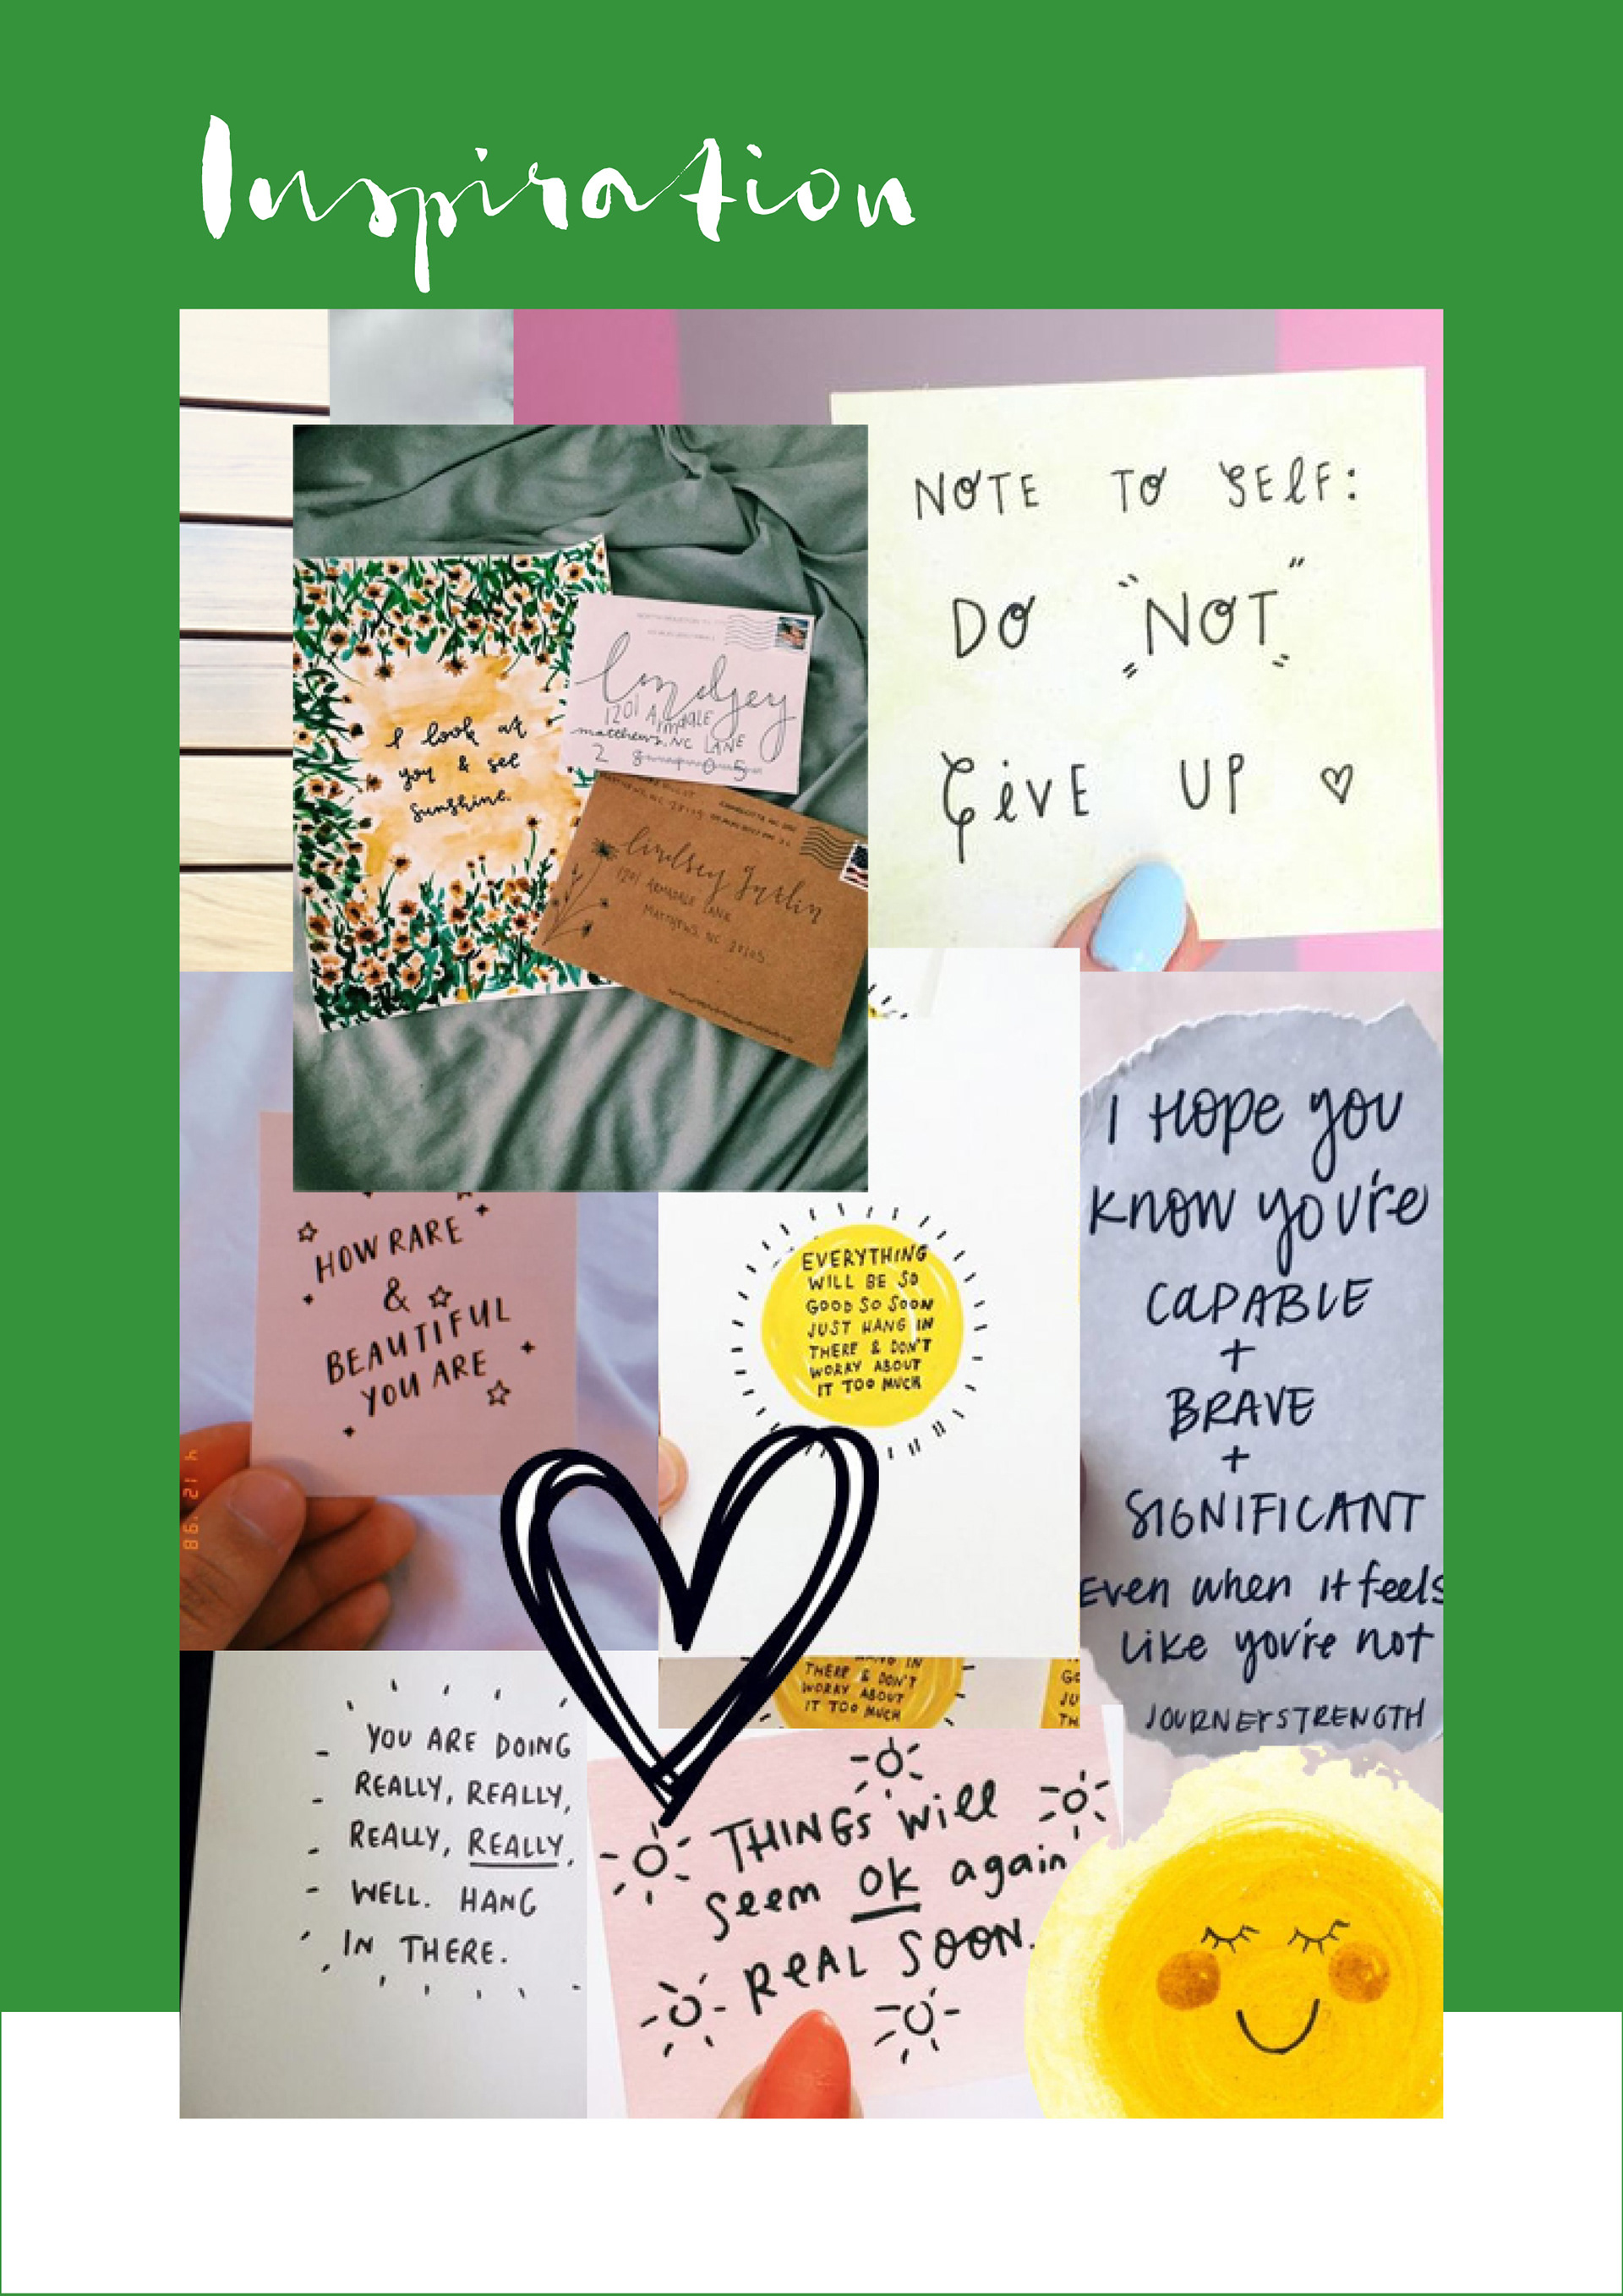 Inspiration
NOTE TO SELF:
DO "NOT"
GIVE UP ♡
I look at
you & see
sunshine.
lindsey
1201 Armadale
matthews, NC LANE
lindsey
1201 ARMADALE LANE
MATTHEWS NC
I Hope you
know you're
CAPABLE
+
BRAVE
+
SIGNIFICANT
Even when it feels
like you're not
JOURNEYSTRENGTH
HOW RARE
&
BEAUTIFUL
YOU ARE
EVERYTHING
WILL BE SO
GOOD SO SOON
JUST HANG IN
THERE & DON'T
WORRY ABOUT
IT TOO MUCH
THERE & DON'T
WORRY ABOUT
IT TOO MUCH
YOU ARE DOING
REALLY, REALLY,
REALLY, REALLY,
WELL. HANG
IN THERE.
THINGS will
seem ok again
REAL SOON.